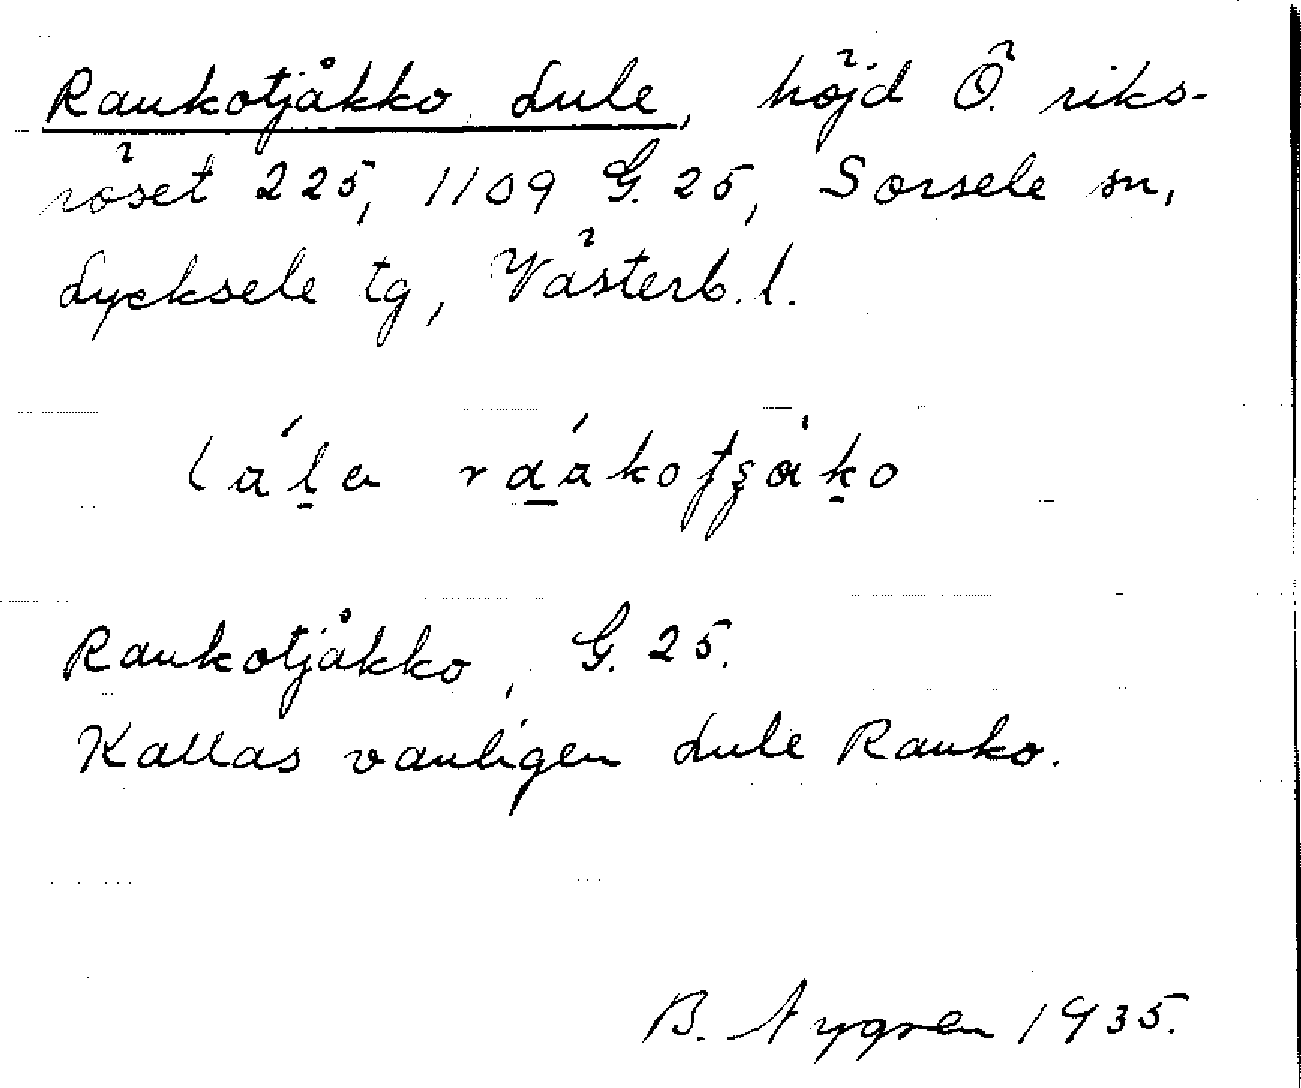 Raukotjåkko Lule, höjd Ö. riks-
röset 225, 1109 G. 25, Sorsele sn,
Lycksele tg, Västerb. l.
Raukotjåkko, G. 25.
Kallas vanligen Lule Rauko.
B. Nygren 1935.